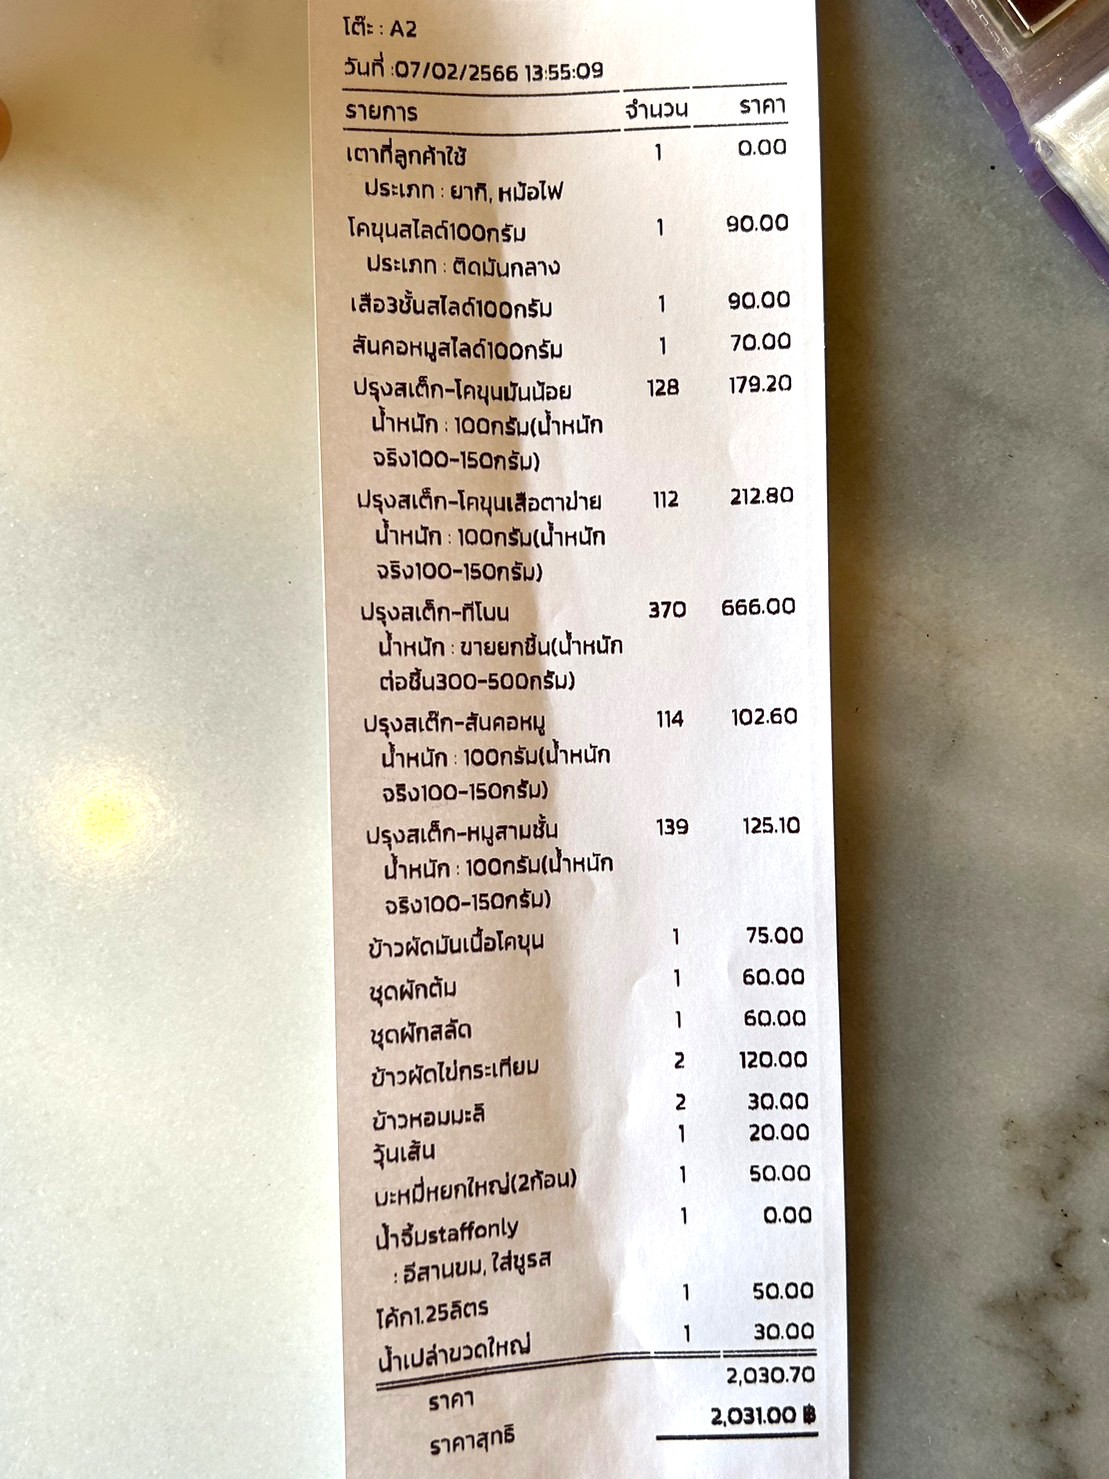 โต๊ะ : A2
วันที่ :07/02/2566 13:55:09
รายการ จำนวน ราคา
เตาที่ลูกค้าใช้ 1 0.00
ประเภท : ยากิ, หม้อไฟ
โคขุนสไลด์100กรัม 1 90.00
ประเภท : ติดมันกลาง
เสือ3ชั้นสไลด์100กรัม 1 90.00
สันคอหมูสไลด์100กรัม 1 70.00
ปรุงสเต็ก-โคขุนมันน้อย 128 179.20
น้ำหนัก : 100กรัม(น้ำหนัก
จริง100-150กรัม)
ปรุงสเต็ก-โคขุนเสือตาข่าย 112 212.80
น้ำหนัก : 100กรัม(น้ำหนัก
จริง100-150กรัม)
ปรุงสเต็ก-ทีโบน 370 666.00
น้ำหนัก : ขายยกชิ้น(น้ำหนัก
ต่อชิ้น300-500กรัม)
ปรุงสเต๊ก-สันคอหมู 114 102.60
น้ำหนัก : 100กรัม(น้ำหนัก
จริง100-150กรัม)
ปรุงสเต็ก-หมูสามชั้น 139 125.10
น้ำหนัก : 100กรัม(น้ำหนัก
จริง100-150กรัม)
ข้าวผัดมันเนื้อโคขุน 1 75.00
ชุดผักต้ม 1 60.00
ชุดผักสลัด 1 60.00
ข้าวผัดไข่กระเทียม 2 120.00
ข้าวหอมมะลิ 2 30.00
วุ้นเส้น 1 20.00
บะหมี่หยกใหญ่(2ก้อน) 1 50.00
น้ำจิ้มstaffonly 1 0.00
: อีสานขม, ใส่ชูรส
โค้ก1.25ลิตร 1 50.00
น้ำเปล่าขวดใหญ่ 1 30.00
ราคา 2,030.70
ราคาสุทธิ 2,031.00 ฿